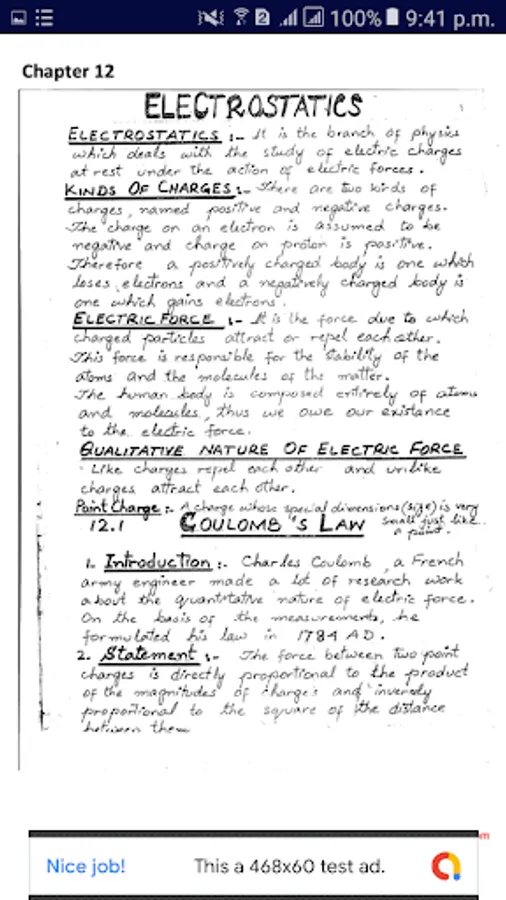 100% 9:41 p.m.
Chapter 12
ELECTROSTATICS
ELECTROSTATICS :- It is the branch of physics
which deals with the study of electric charges
at rest under the action of electric forces.
KINDS OF CHARGES :- There are two kinds of
charges, named positive and negative charges.
The charge on an electron is assumed to be
negative and charge on proton is positive.
Therefore a positively charged body is one which
loses electrons and a negatively charged body is
one which gains electrons.
ELECTRIC FORCE :- It is the force due to which
charged particles attract or repel each other.
This force is responsible for the stability of the
atoms and the molecules of the matter.
The human body is composed entirely of atoms
and molecules, thus we owe our existance
to the electric force.
QUALITATIVE NATURE OF ELECTRIC FORCE
Like charges repel each other and unlike
charges attract each other.
Point Charge :- A charge whose special dimensions (size) is very
small just like
a point.
12.1 COULOMB'S LAW
1. Introduction :- Charles Coulomb, a French
army engineer made a lot of research work
about the quantitative nature of electric force.
On the basis of the measurements, he
formulated his law in 1784 AD.
2. Statement :- The force between two point
charges is directly proportional to the product
of the magnitudes of charges and inversly
proportional to the square of the distance
between them
Nice job! This a 468x60 test ad.